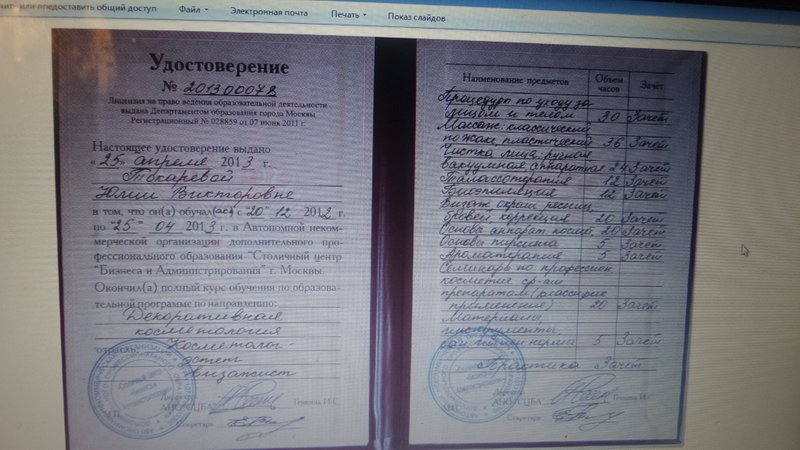 или предоставить общий доступ Файл Электронная почта Печать Показ слайдов
Удостоверение
№ 201300078
Лицензия на право ведения образовательной деятельности
выдана Департаментом образования города Москвы
Регистрационный № 028859 от 07 июня 2011 г.
Настоящее удостоверение выдано
«25» апреля 2013 г.
Токаревой
Юлии Викторовне
в том, что он(а) обучал(ас) с "20" 12 2012 г.
по "25" 04 2013 г. в Автономной неком-
мерческой организации дополнительного про-
фессионального образования "Столичный центр
"Бизнеса и Администрирования" г. Москвы.
Окончил(а) полный курс обучения по образова-
тельной программе по направлению:
Декоративная
косметология
Косметолог-
эстет
Визажист
Директор
АНОУСЦБА
Секретарь
Наименование предметов Объем часов Зачёт
Процедуры по уходу за
лицом и телом 30 Зачёт
Массаж: классический
по Жаке, пластический 36 Зачёт
Чистка лица: ручная
вакуумная аппаратная 24 Зачёт
Талассотерапия 12 Зачёт
Биоэпиляция 12 Зачёт
Визаж окраш. ресниц,
бровей коррекция 20 Зачёт
Основы аппарат. космет. 20 Зачёт
Основы пирсинга 5 Зачёт
Ароматерапия 5 Зачёт
Семинары по профессион.
косметике ср-ам
препаратам (классифик
применение) 20 Зачёт
Материалы
инструменты.
сан нормы 5 Зачёт
Практика Зачёт
АНОУСЦБА
Секретарь